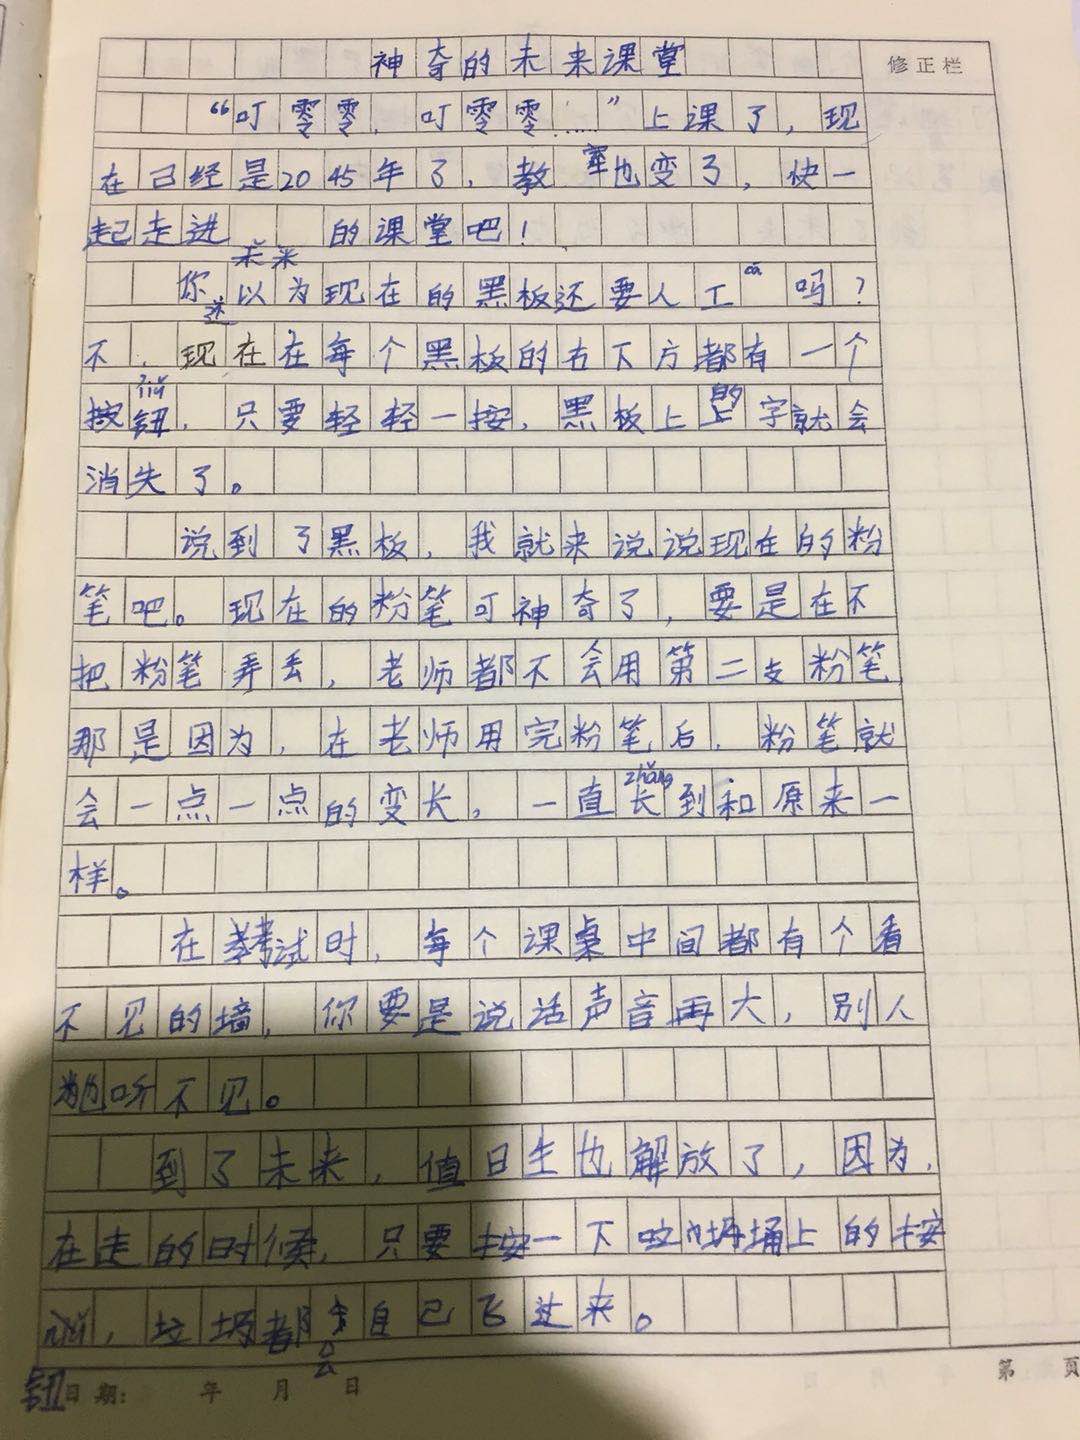 神奇的未来课堂
修正栏
“叮零零，叮零零……”上课了，现
在已经是2045年了，教室也变了，快一
起走进未来的课堂吧！
你还以为现在的黑板还要人工cā吗？
不，现在在每个黑板的右下方都有一个
按钮，只要轻轻一按，黑板上的字就会
消失了。
说到了黑板，我就来说说现在的粉
笔吧。现在的粉笔可神奇了，要是在不
把粉笔弄丢，老师都不会用第二支粉笔
那是因为，在老师用完粉笔后，粉笔就
会一点一点的变长，一直长zhǎng到和原来一
样。
在考试时，每个课桌中间都有个看
不见的墙，你要是说话声音再大，别人
听不见。
到了未来，值日生也解放了，因为，
在走的时候，只要按一下垃圾桶上的按
钮，垃圾都会自己飞过来。
日期： 年 月 日
第 页